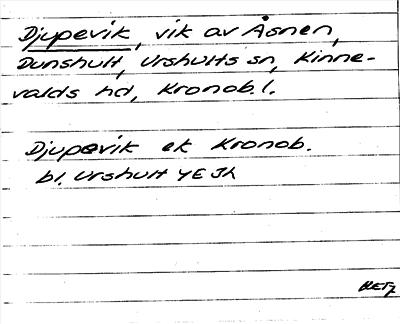 Djupevik, vik av Åsnen,
Dunshult, Urshults sn, Kinne-
valds hd, Kronob.l.
Djupevik ek Kronob.
bl. Urshult 4E Jh